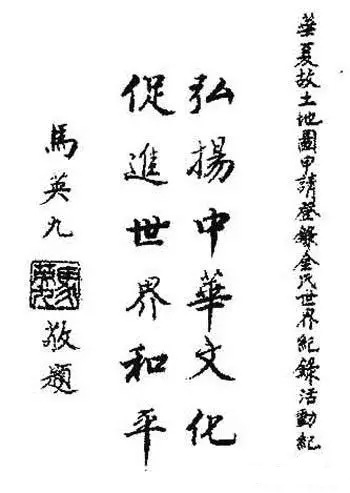 華夏故土地圖申請登錄金氏世界紀錄活動紀
弘揚中華文化
促進世界和平
馬英九
敬題